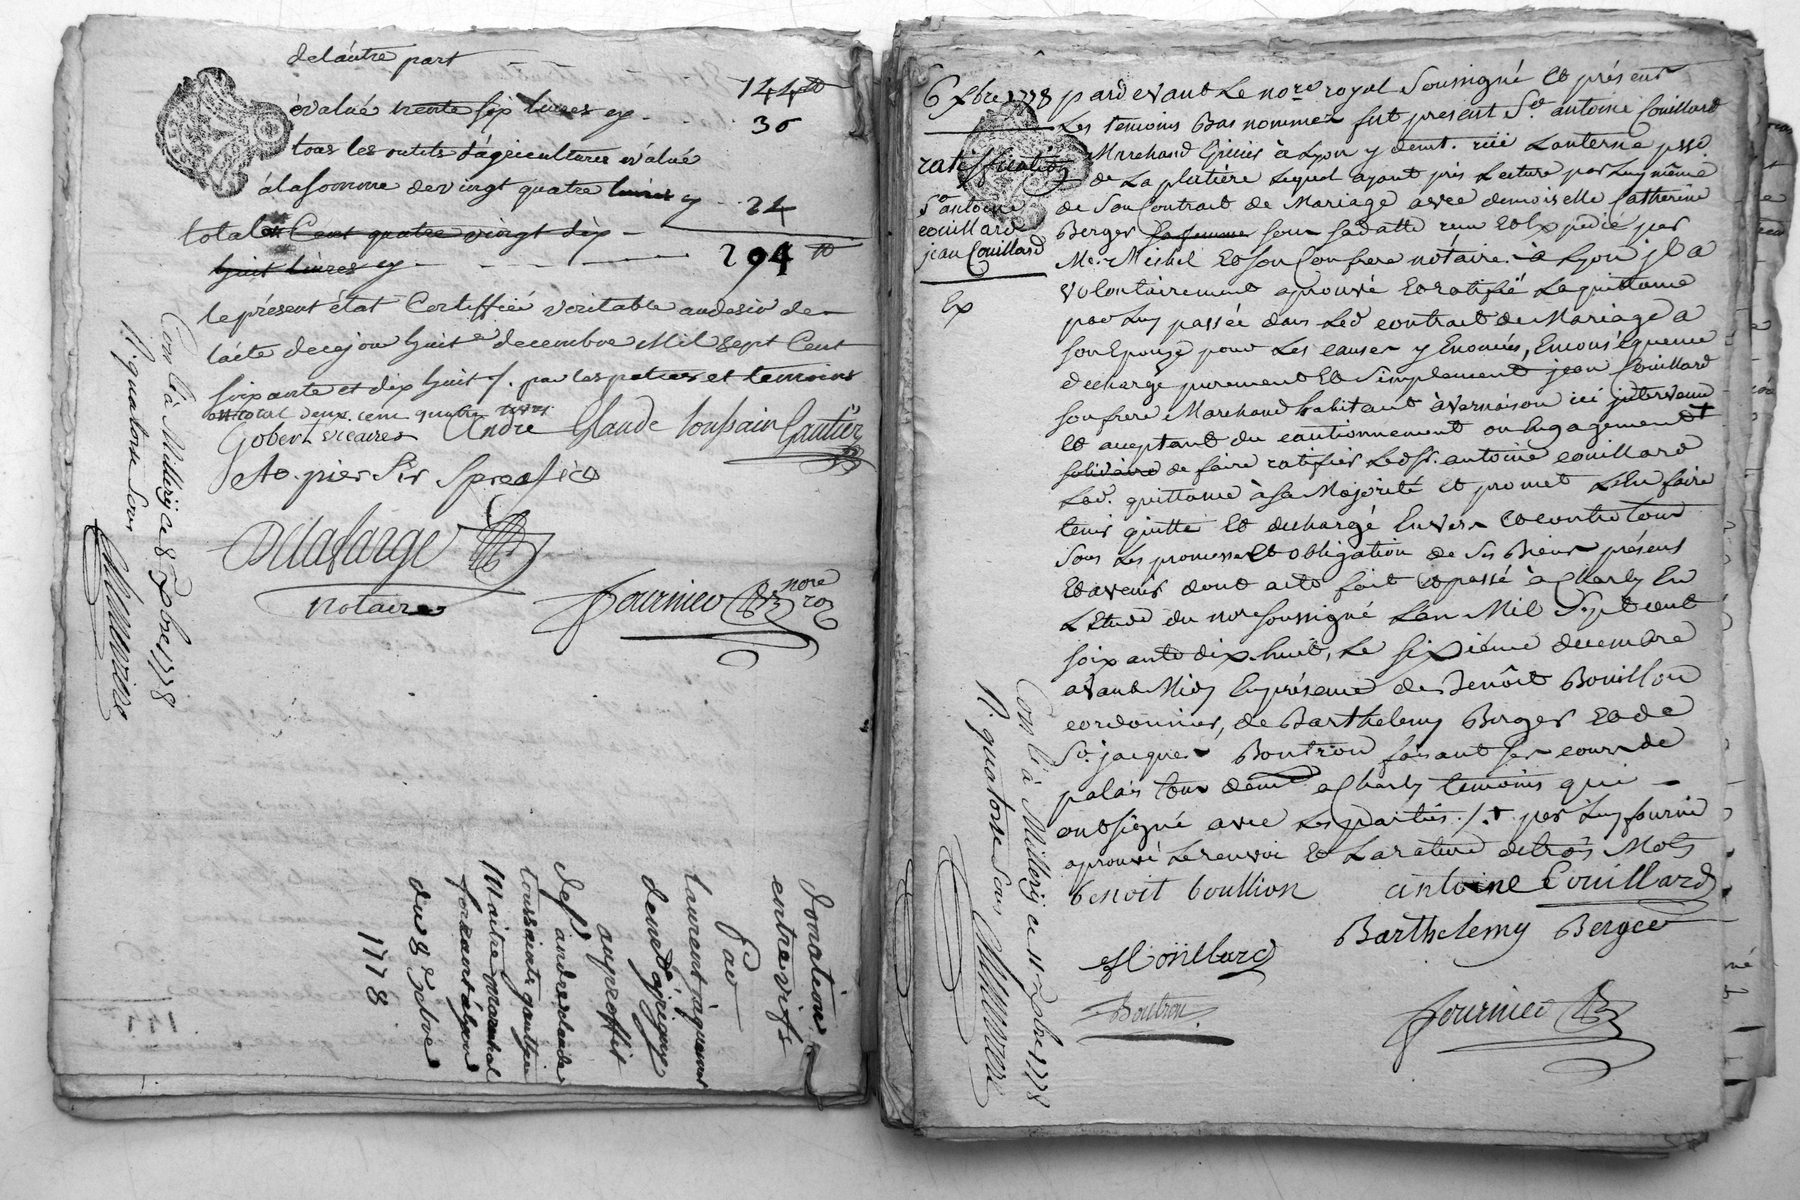 de lautre part
144 tt
évalué trente six livres cy - 36
tous les outils d'agriculture évalué
à la somme de vingt quatre livres cy - 24
total Cent quatre vingt dix -
huit livres cy - 204 tt
le présent état Certiffié véritable au desir de
lacte de ce jour huit decembre Mil sept Cent
soixante et dix huit /. par les parties et temoins
au total deux cent quatre livres
Gobert vicaires André Glaude toussain Gautier
Delafarge
notaire
fournier nore roy
Con lé à Millery ce 8 Xbre 1778
R. quatorze sous
donation
entrevifs
par
laurent jaquemot
demt d'irigny
au proffit
de sr andré claude
toussainte gauthier
Maitre marechal
ferrant à lyon
du 8 Xbre
1778
6 Xbre 1778
ratiffication
Sr antoine
couillard
jean Couillard
Ex
pardevant Le nore royal Soussigné Et présent
Les temoins Bas nommez fut present Sr. antoine Couillard
Marchand Epicier à Lyon y demt. rüe Lanterne psse
de La platière Lequel ayant pris Lecture par Luy même
de Son Contrat de Mariage avec demoiselle Catherine
Berger sa femme sous sa datte reçu Et Expedié par
Me. Michel Et son Confrere nótaire à Lyon jl a
volontairement aprouvé Et ratifié La quittance
par Luy passée dans Led contrat de Mariage a
son Epouse pour Les causes y Enoncées, En conséquence
decharge purement Et Simplement jean Couillard
son frere Marchand habitant à vernaison ici jntervenu
Et aceptant du cautionnement ou Engagement
solidaire de faire ratifier Led Sr. antoine couillard
Lad. quittance à sa Majorité Et promet L'En faire
tenir quitte Et dechargé Envers Et contre tous
sous Les promesses Et obligation de Ses Biens présens
Et avenir dont acte fait Et passé à Charly En
L'Etude du nore soussigné L'an Mil Sept cent
soixante dix huit, Le sixieme decembre
avant Midy En présence de Benôit Bouillon
cordonnier, de Barthelemy Berger Et de
Sr. jacques Boutron faisant ses cours de
palais tous demt a Charly temoins qui
ont signé avec Les parties /. † par Luy fournie
aprouvé Le renvoi Et La rature de trois Mots
benoit boullion antoine Couillard
Barthelemy Berger
J Coüillard
Boutron
fournier
Con lé à Millery ce 11 Xbre 1778
R. quatorze sous